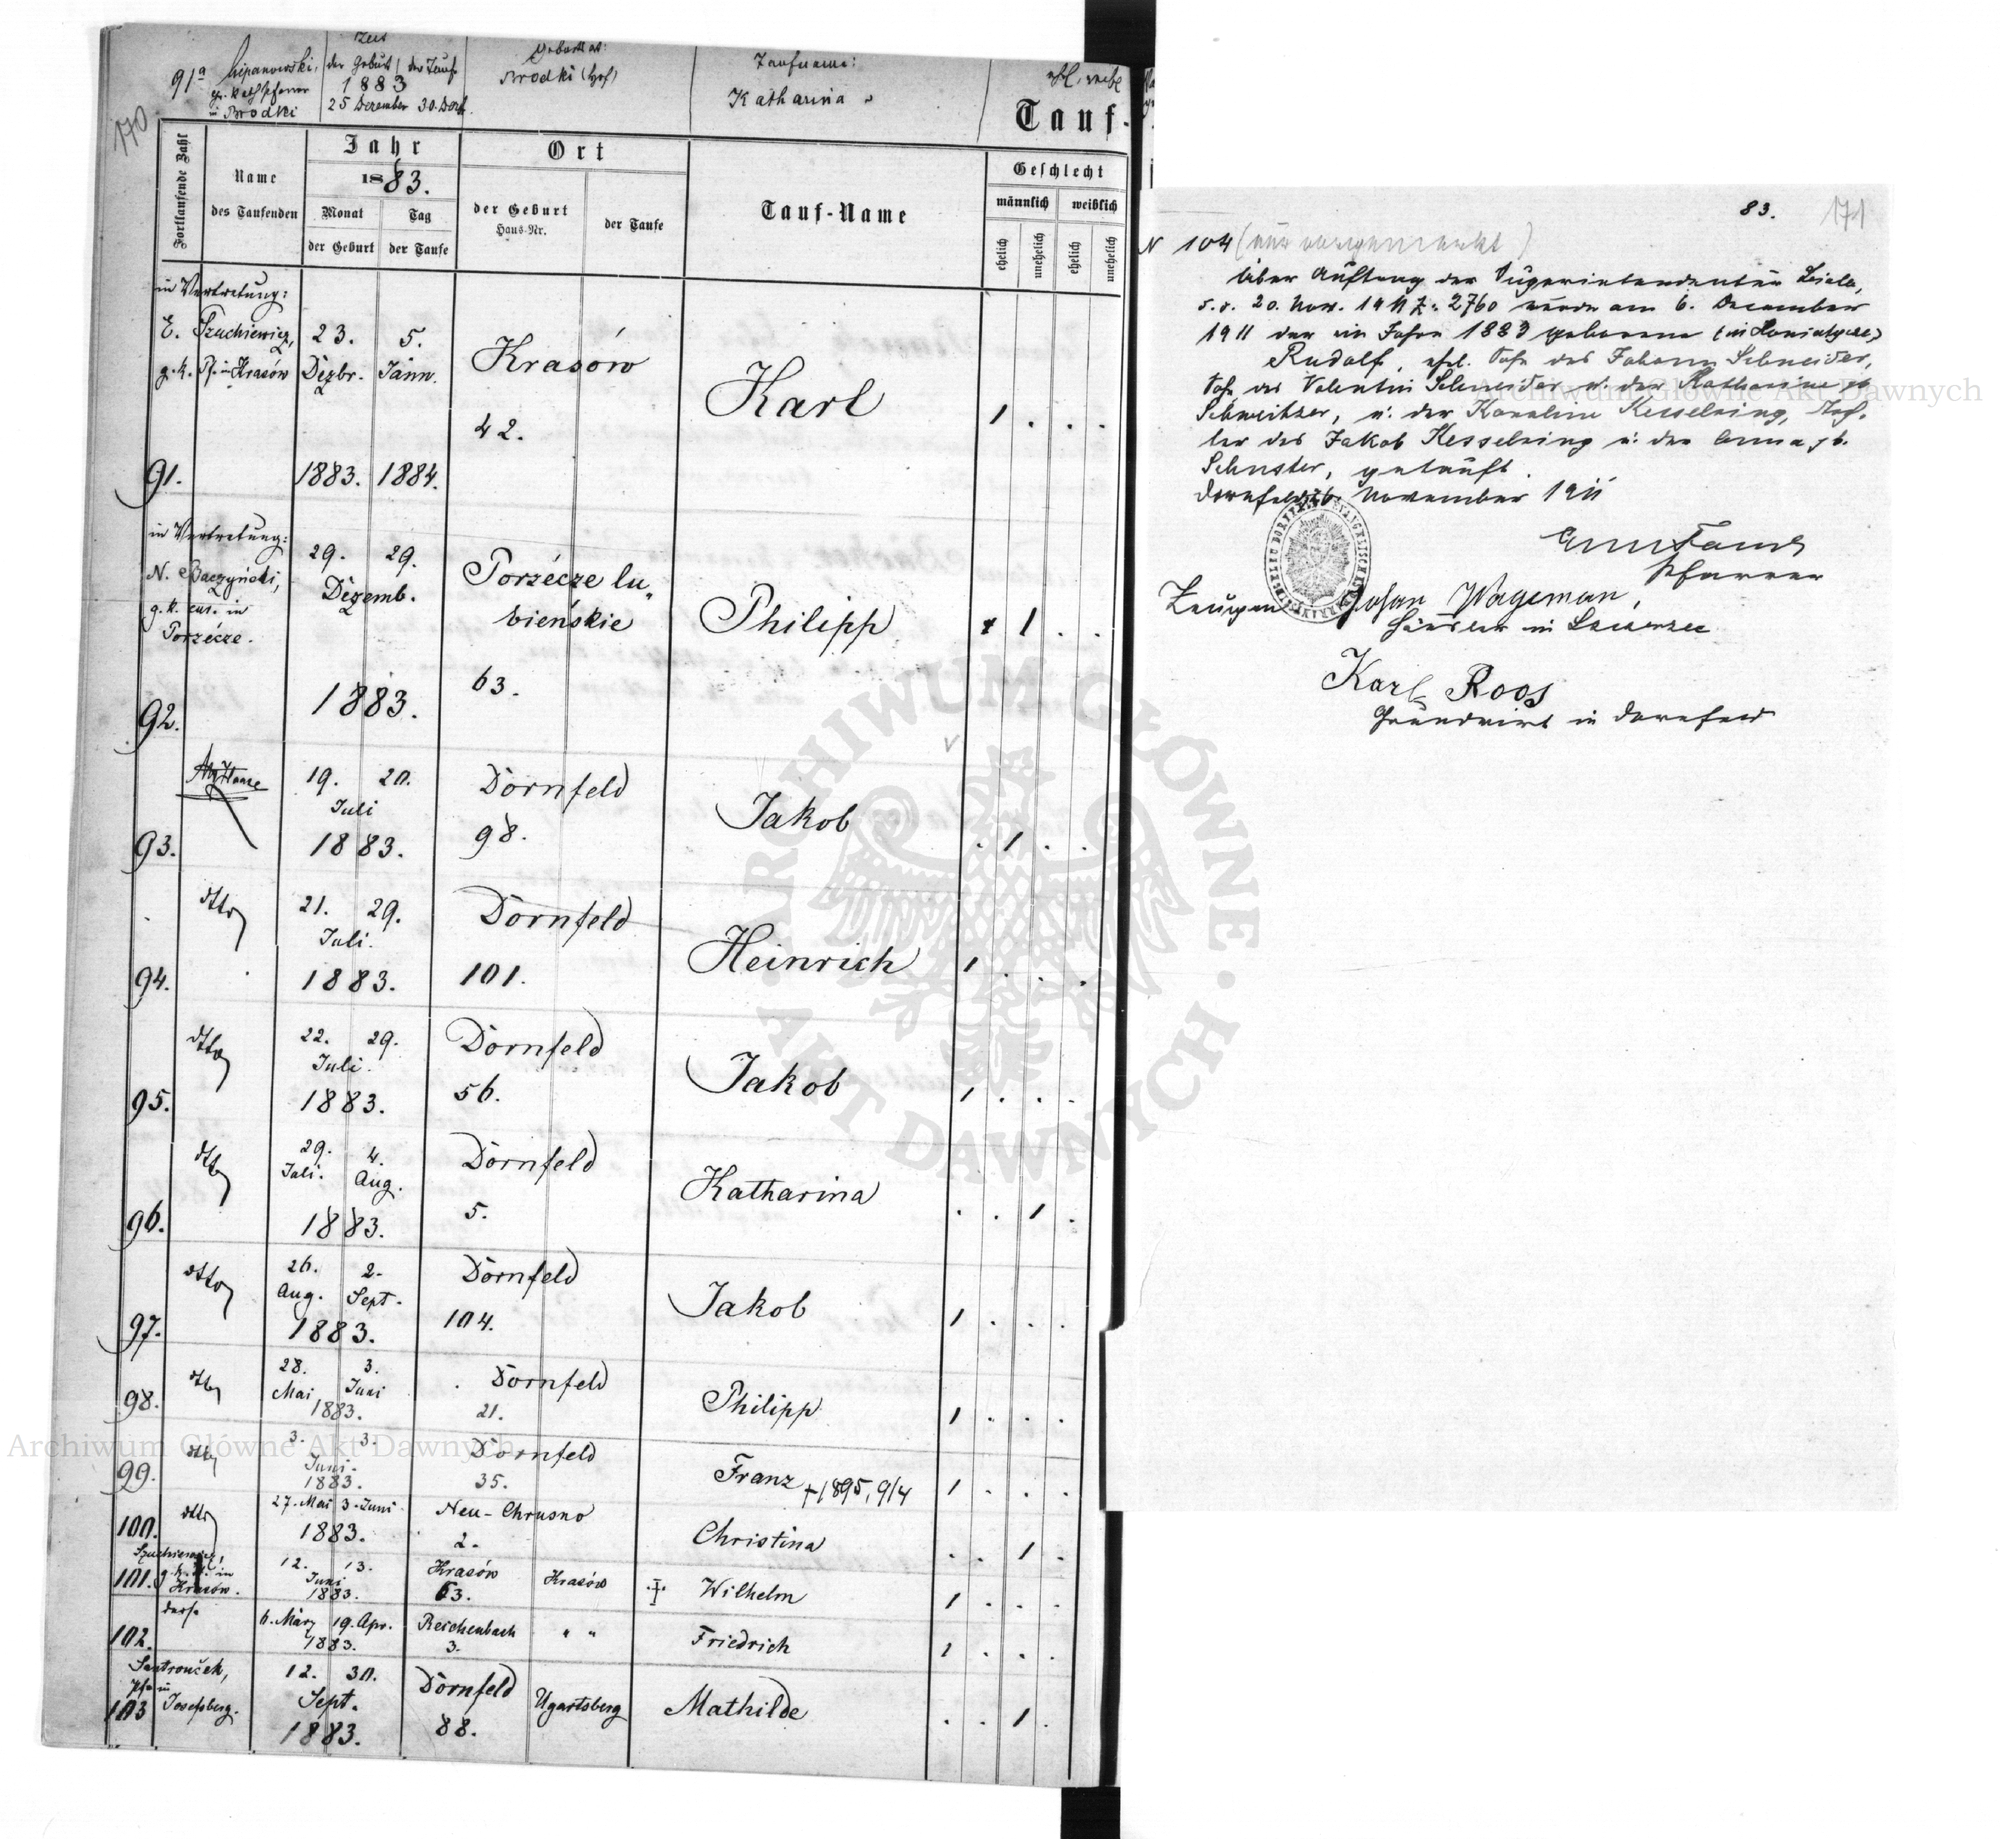 170
91a Lipanowski,
gr. kath Pfarrer
in Brodki
Zeit
der Geburt / der Taufe
1883
25 Dezember 30. Dez.
Geburtsort:
Brodki (Hof)
Taufname:
Katharina
ehl. weibl
Tauf-
Fortlaufende Zahl
Name
des Taufenden
Jahr
1883.
Monat
Tag
der Geburt
der Taufe
Ort
der Geburt
Haus-Nr.
der Taufe
Tauf-Name
Geschlecht
männlich
weiblich
ehelich
unehelich
ehelich
unehelich
in Vertretung:
E. Szuchiewicz,
g. k. Pf. in Krasów
23. 5.
Dezbr. Jänn.
Krasów
42.
Karl
1 . . .
91.
1883. 1884.
in Vertretung:
N. Baczyński,
g. k. cur. in
Porzécze.
29. 29.
Dezemb.
Porzécze lu„
bieńskie
63.
Philipp
1 . .
92.
1883.
19. 20.
Juli
1883.
Dornfeld
98.
Jakob
. 1 . .
93.
dtto
21. 29.
Juli.
1883.
Dornfeld
101.
Heinrich
1 . . .
94.
dtto
22. 29.
Juli.
1883.
Dornfeld
56.
Jakob
1 . . .
95.
dtto
29. 4.
Juli. Aug.
1883.
Dornfeld
5.
Katharina
. . 1 .
96.
dtto
26. 2.
Aug. Sept.
1883.
Dornfeld
104.
Jakob
1 . . .
97.
dtto
28. 3.
Mai Juni
1883.
Dornfeld
21.
Philipp
1 . . .
98.
dtto
3. 3.
Juni.
1883.
Dornfeld
35.
Franz +1895, 9/4
1 . . .
99.
dtto
27. Mai 3. Juni
1883.
Neu-Chrusno
2.
Christina
. . 1 .
100.
Szuchiewicz,
g. k. Pf. in
Krasów.
12. 13.
Juni
1883.
Krasów
63.
Krasów
Wilhelm
1 . . .
101.
ders.
6. März 19. Apr.
1883.
Reichenbach
3.
" "
Friedrich
1 . . .
102.
Santrouček,
Pfr in
Josefsberg.
12. 30.
Sept.
1883.
Dornfeld
88.
Ugartsberg
Mathilde
. . 1 .
103
83.
171
N 104
Über Auftrag der Superintendentur Biala,
d. d. 20. Nov. 1911 Z: 2760 wurde am 6. December
1911 der im Jahre 1883 geborene
Rudolf, ehl. Sohn des Johann Schneider,
Sohn des Valentin Schneider u. der Katharina gb
Schweitzer, u. der Karoline Kesselring, Toch-
ter des Jakob Kesselring u. der Anna gb.
Schuster, getauft.
Dornfeld, 26. November 1911
Pfarrer
Zeugen Johan Wageman,
Karl Roos
Grundwirt in Dornfeld
Archiwum Główne Akt Dawnych
Archiwum Główne Akt Dawnych
ARCHIWUM GŁÓWNE · AKT DAWNYCH ·